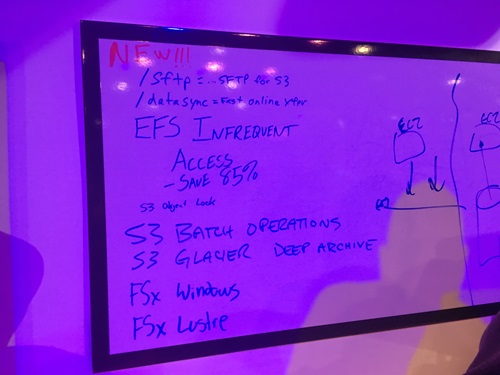 NEW!!!
/sftp = ... SFTP for S3
/datasync = Fast online xfer
EFS INFREQUENT
ACCESS
- SAVE 85%
S3 Object Lock
S3 BATCH OPERATIONS
S3 GLACIER DEEP ARCHIVE
FSx Windows
FSx Lustre
EC2
EC2